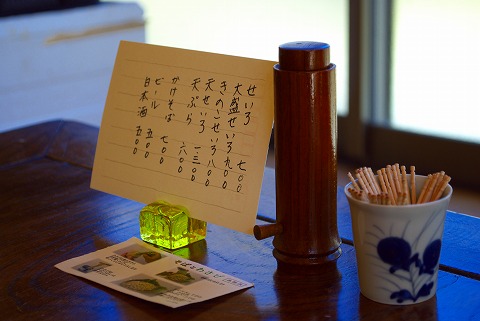 せいろ 七〇〇
大盛せいろ 九〇〇
きのこせいろ 八〇〇
天せいろ 一,三〇〇
天ぷら 六〇〇
かけそば 七〇〇
ビール 五〇〇
日本酒 五〇〇